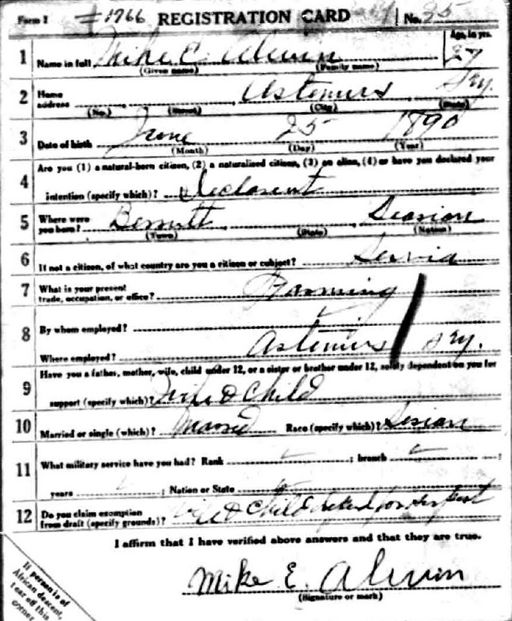 Form 1 #1766 REGISTRATION CARD No. 25
Age, in yrs.
1 Name in full Mike E. Alwin 27
(Given name) (Family name)
2 Home address Wy.
(No.) (Street) (City) (State)
3 Date of birth June 25 1890
(Month) (Day) (Year)
4 Are you (1) a natural-born citizen, (2) a naturalized citizen, (3) an alien, (4) or have you declared your
intention (specify which)? Declarent
5 Where were you born?
(Town) (State) (Nation)
6 If not a citizen, of what country are you a citizen or subject? Servia
7 What is your present trade, occupation, or office? Farming
8 By whom employed?
Where employed? Wy.
9 Have you a father, mother, wife, child under 12, or a sister or brother under 12, solely dependent on you for
support (specify which)? Wife & Child
10 Married or single (which)? Married Race (specify which)?
11 What military service have you had? Rank ; branch
years ; Nation or State
12 Do you claim exemption from draft (specify grounds)? & Child support
I affirm that I have verified above answers and that they are true.
Mike E. Alwin
(Signature or mark)
If person is of
African descent,
tear off this
corner